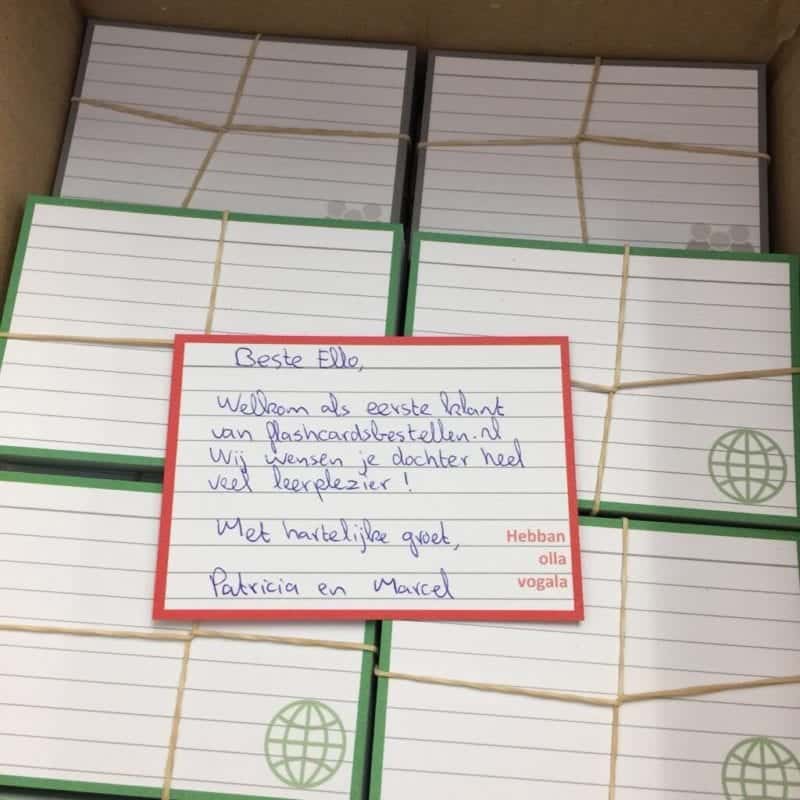 Beste Ello,
Welkom als eerste klant
van flashcardsbestellen.nl
Wij wensen je dochter heel
veel leerplezier!
Met hartelijke groet,
Patricia en Marcel
Hebban
olla
vogala